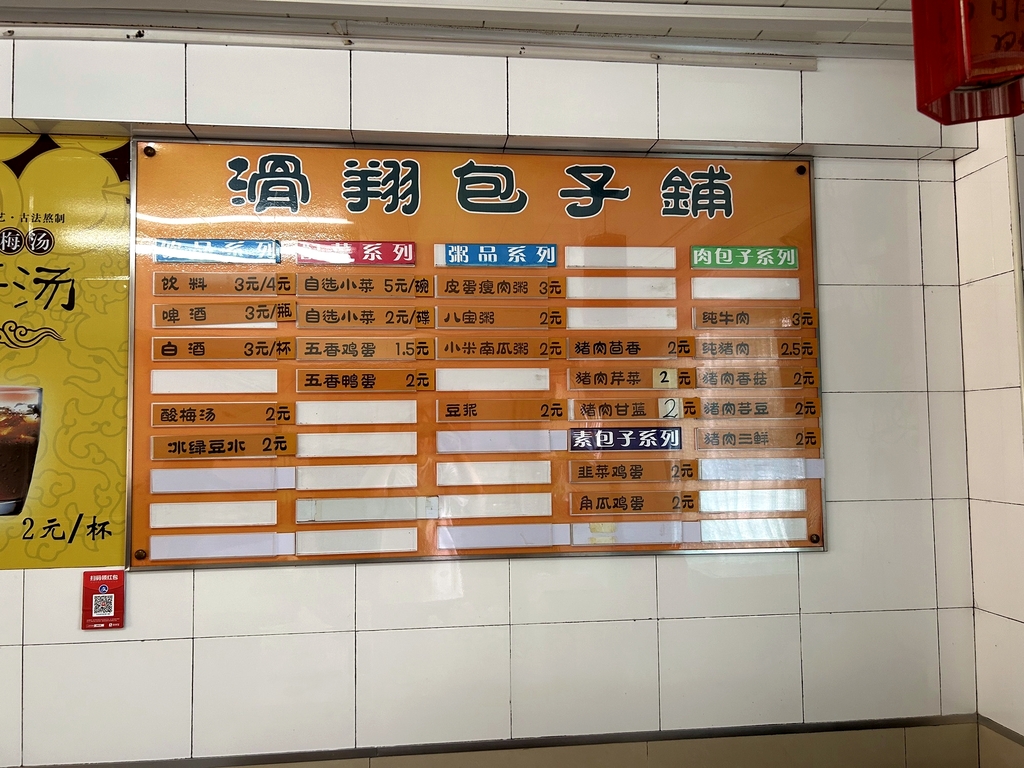 艺·古法熬制
梅汤
汤
2元/杯
扫码领红包
滑翔包子鋪
饮品系列
饮料 3元/4元
啤酒 3元/瓶
白酒 3元/杯
酸梅汤 2元
冰绿豆水 2元
菜系列
自选小菜 5元/碗
自选小菜 2元/碟
五香鸡蛋 1.5元
五香鸭蛋 2元
粥品系列
皮蛋瘦肉粥 3元
八宝粥 2元
小米南瓜粥 2元
豆浆 2元
猪肉茴香 2元
猪肉芹菜 2元
猪肉甘蓝 2元
素包子系列
韭菜鸡蛋 2元
角瓜鸡蛋 2元
肉包子系列
纯牛肉 3元
纯猪肉 2.5元
猪肉香菇 2元
猪肉芸豆 2元
猪肉三鲜 2元